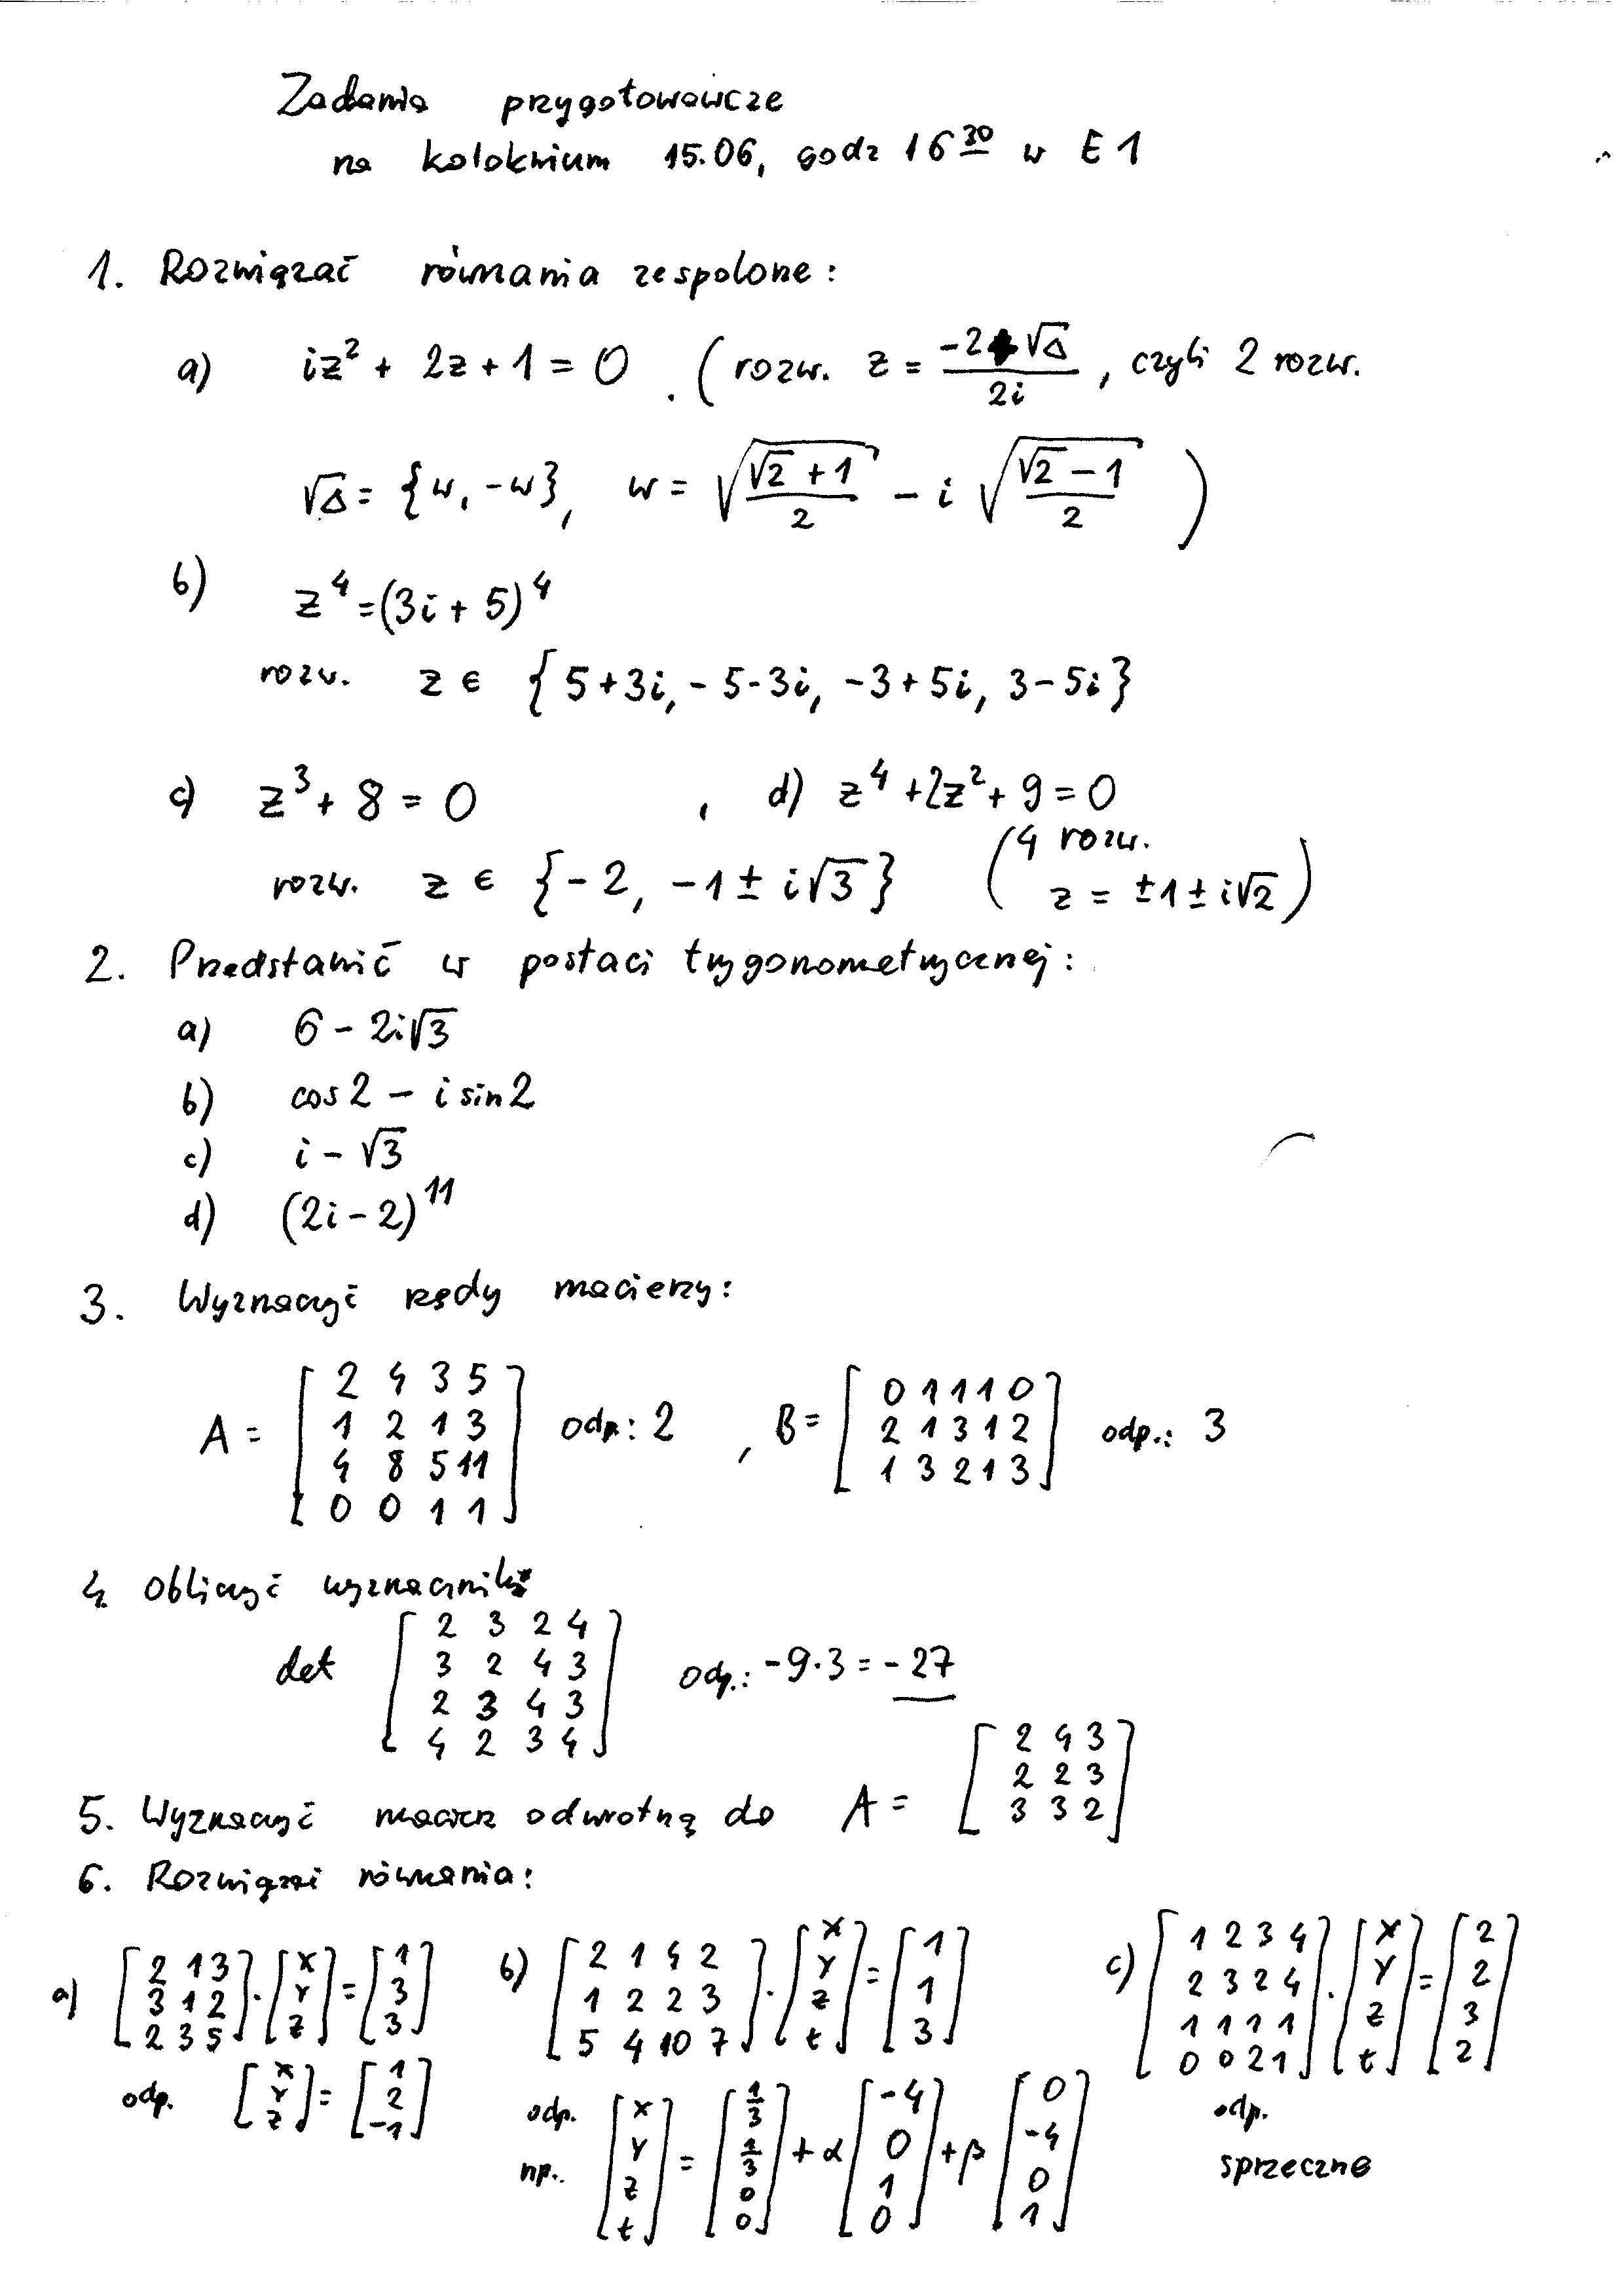 Zadania przygotowawcze
na kolokwium 15.06, godz 16³⁰ w E1
1. Rozwiązać równania zespolone:
a) iz² + 2z + 1 = 0. (rozw. z = (-2+√Δ)/(2i), czyli 2 rozw.
√Δ = {w, -w}, w = √((√2+1)/2) - i√((√2-1)/2) )
b) z⁴ = (3i + 5)⁴
rozw. z ∈ {5+3i, -5-3i, -3+5i, 3-5i}
c) z³ + 8 = 0 , d) z⁴ + 2z² + 9 = 0
rozw. z ∈ {-2, -1 ± i√3} (4 rozw. z = ±1 ± i√2)
2. Przedstawić w postaci trygonometrycznej:
a) 6 - 2i√3
b) cos 2 - i sin 2
c) i - √3
d) (2i - 2)¹¹
3. Wyznaczyć rzędy macierzy:
A = [2 4 3 5; 1 2 1 3; 4 8 5 11; 0 0 1 1] odp.: 2 , B = [0 1 1 1 0; 2 1 3 1 2; 1 3 2 1 3] odp.: 3
4. Obliczyć wyznacznik
det [2 3 2 4; 3 2 4 3; 2 3 4 3; 4 2 3 4] odp.: -9·3 = -27
5. Wyznaczyć macierz odwrotną do A = [2 4 3; 2 2 3; 3 3 2]
6. Rozwiązać równania:
a) [2 1 3; 3 1 2; 2 3 5]·[x; y; z] = [1; 3; 3] b) [2 1 4 2; 1 2 2 3; 5 4 10 7]·[x; y; z; t] = [1; 1; 3] c) [1 2 3 4; 2 3 2 4; 1 1 1 1; 0 0 2 1]·[x; y; z; t] = [2; 2; 3; 2]
odp. [x; y; z] = [1; 2; -1] odp. np. [x; y; z; t] = [1/3; 1/3; 0; 0] + α[-4; 0; 1; 0] + β[0; -4; 0; 1] odp. sprzeczne